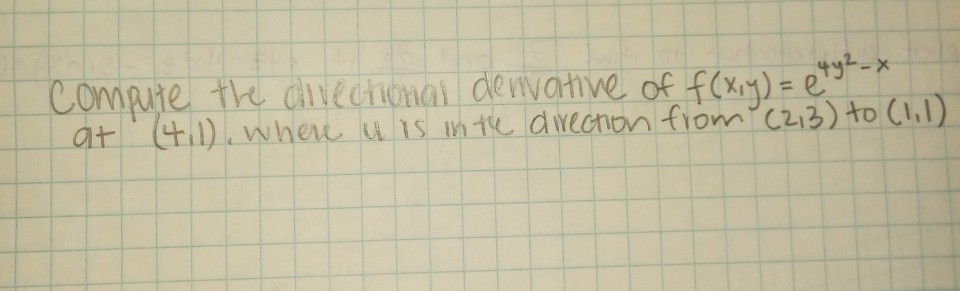 Compute the directional derivative of f(x,y) = e^{4y^2-x}
at (4,1), where u is in the direction from (2,3) to (1,1)